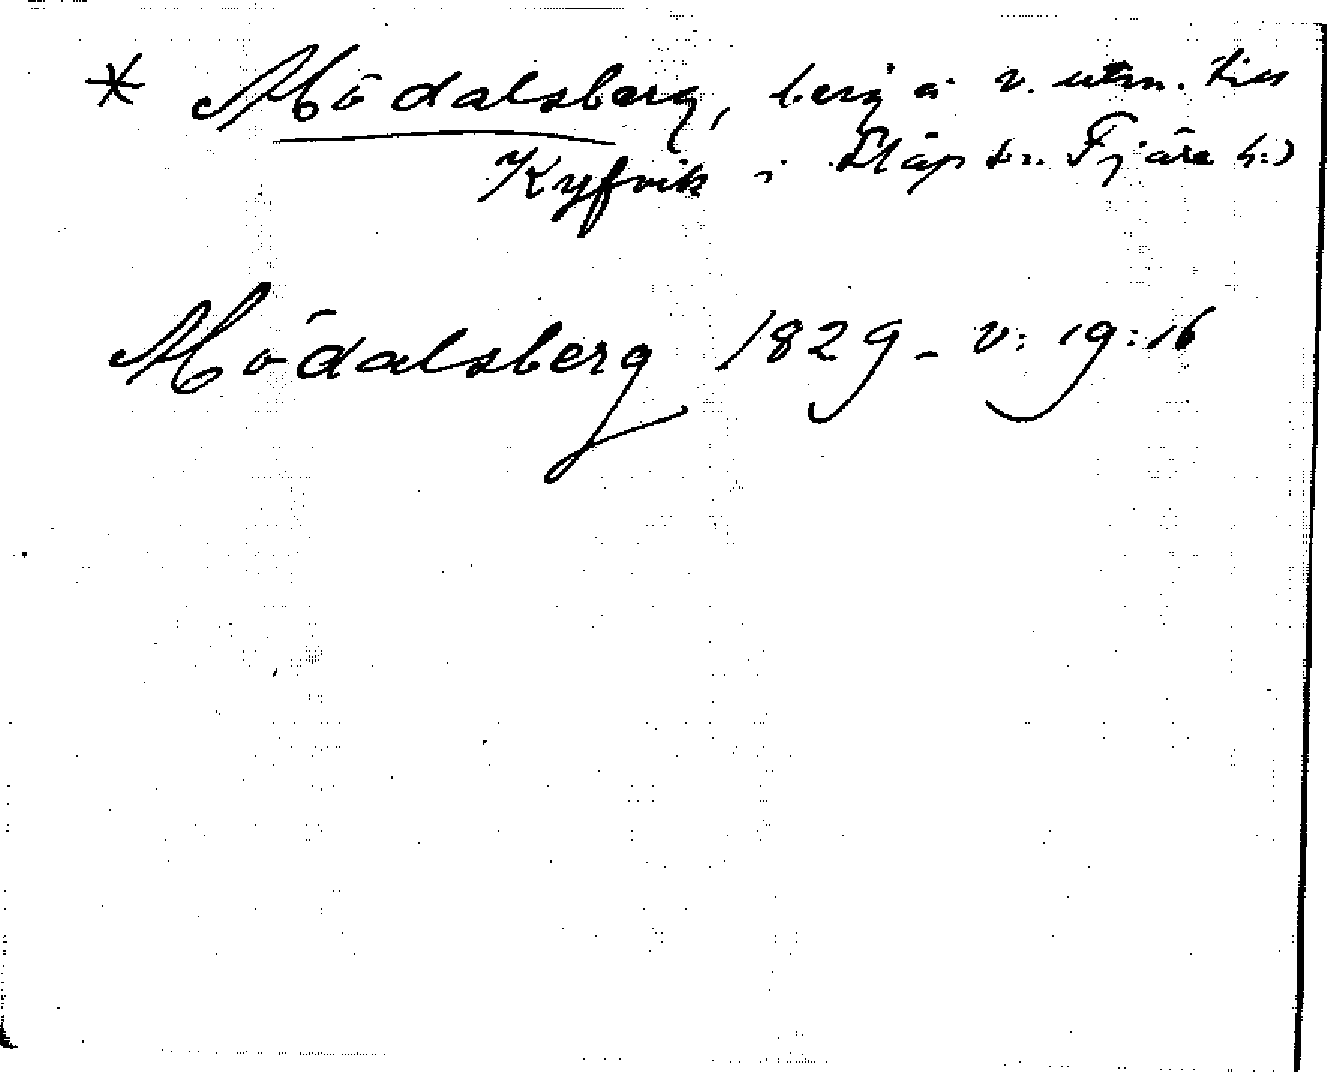 * Mödalsberg, berg å v. utm. till
Kyfvik i Släp sn. Fjäre h:)
Mödalsberg 1829 - V: 19:16